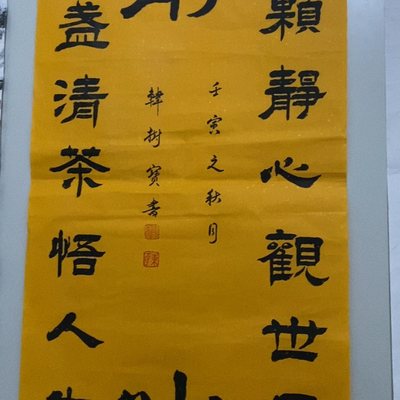 顆靜心觀世
壬寅之秋月
韓樹寶書
盞清茶悟人